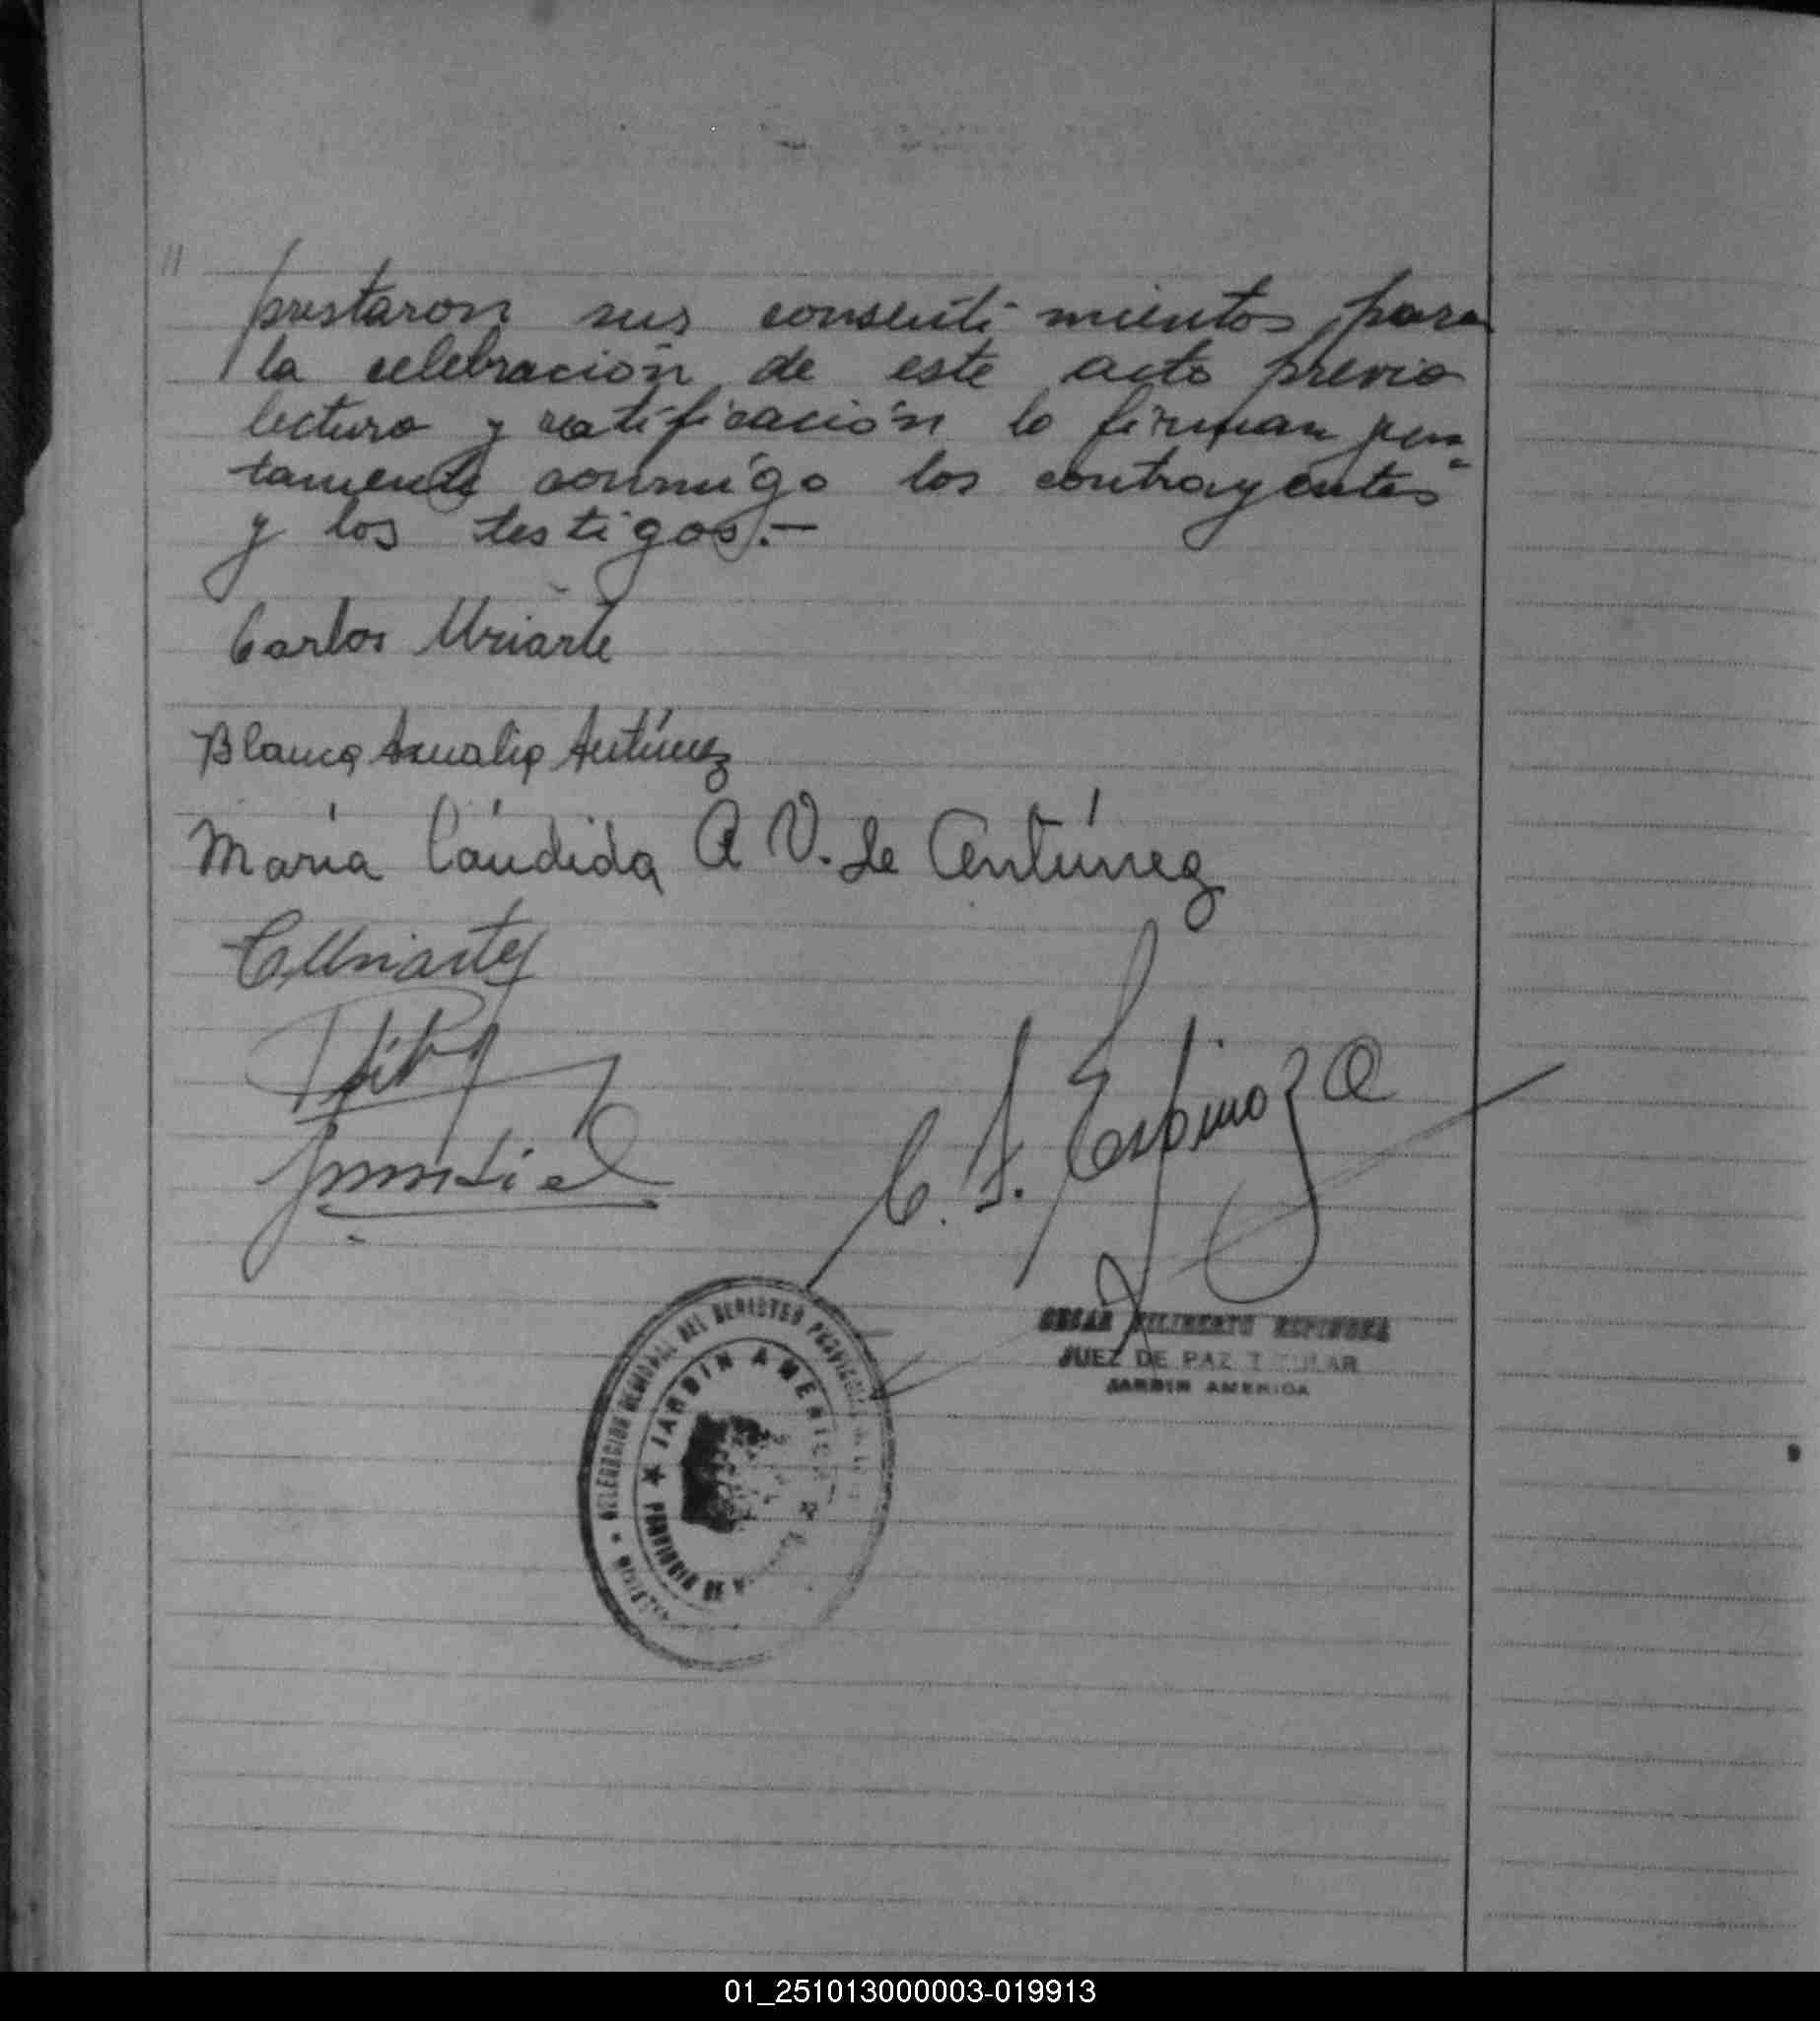 prestaron sus consentimientos para
la celebración de este acto previa
lectura y ratificación lo firman jun-
tamente conmigo los contrayentes
y los testigos.-
Carlos Uriarte
Blanca Amalia Antúnez
María Cándida A V. de Antúnez
C. Uriarte
C. F. Espinoza
CESAR FILIBERTO ESPINOZA
JUEZ DE PAZ TITULAR
JARDIN AMERICA
DEL REGISTRO PROVINCIAL
★ JARDIN AMERICA
01_251013000003-019913